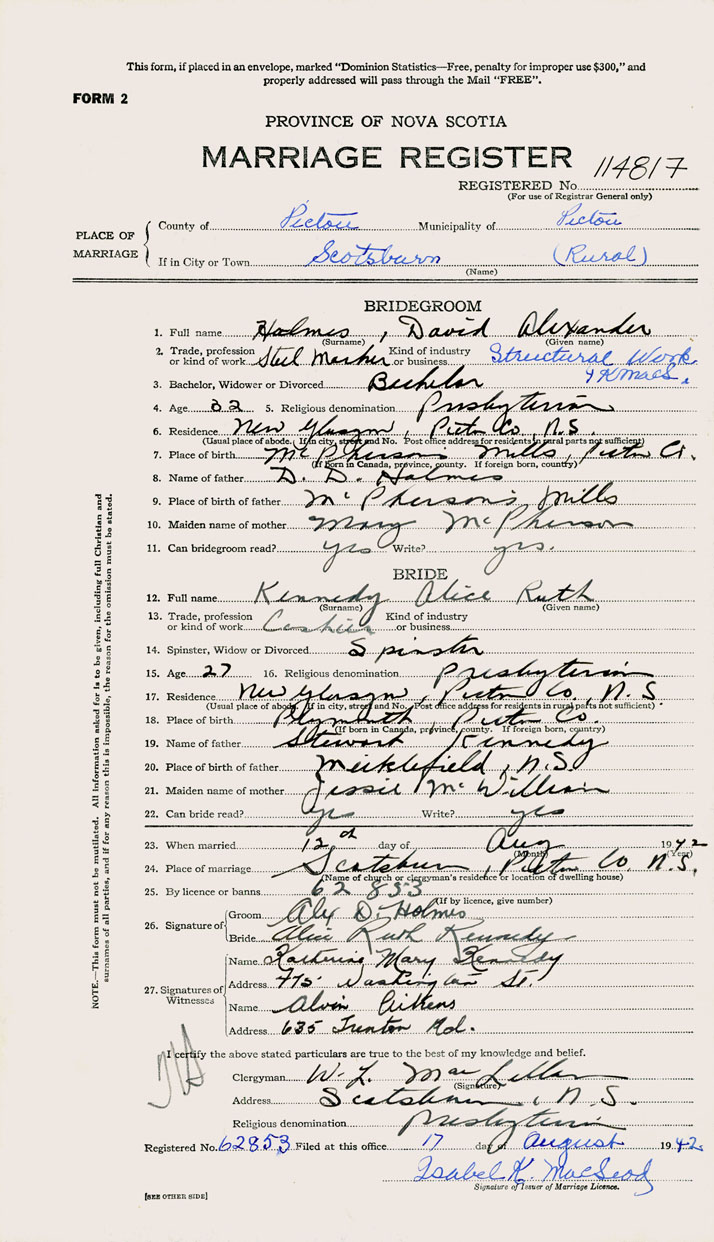 This form, if placed in an envelope, marked "Dominion Statistics—Free, penalty for improper use $300," and
properly addressed will pass through the Mail "FREE".
FORM 2
PROVINCE OF NOVA SCOTIA
MARRIAGE REGISTER
114817
REGISTERED No.
(For use of Registrar General only)
PLACE OF MARRIAGE
County of Pictou Municipality of Pictou
If in City or Town Scotsburn (Rural)
(Name)
BRIDEGROOM
1. Full name Holmes, David Alexander
(Surname) (Given name)
2. Trade, profession or kind of work Steel Kind of industry or business Structural Work
3. Bachelor, Widower or Divorced Bachelor
4. Age 32 5. Religious denomination Presbyterian
6. Residence New Glasgow, Pictou Co., N.S.
(Usual place of abode. If in city, street and No. Post office address for residents in rural parts not sufficient)
7. Place of birth McPhersons Mills, Pictou Co.
(If Born in Canada, province, county. If foreign born, country)
8. Name of father D. D. Holmes
9. Place of birth of father McPherson's Mills
10. Maiden name of mother Mary McPherson
11. Can bridegroom read? yes Write? yes.
BRIDE
12. Full name Kennedy Alice Ruth
(Surname) (Given name)
13. Trade, profession or kind of work Cashier Kind of industry or business
14. Spinster, Widow or Divorced Spinster
15. Age 27 16. Religious denomination Presbyterian
17. Residence New Glasgow, Pictou Co., N.S
(Usual place of abode. If in city, street and No. Post office address for residents in rural parts not sufficient)
18. Place of birth Plymouth, Pictou Co.
(If born in Canada, province, county. If foreign born, country)
19. Name of father Stewart Kennedy
20. Place of birth of father Meiklefield, N.S.
21. Maiden name of mother Jessie McWilliam
22. Can bride read? yes Write? yes
23. When married 12th day of Aug 1942
(Month) (Year)
24. Place of marriage Scotsburn, Pictou Co N.S.
(Name of church or clergyman's residence or location of dwelling house)
25. By licence or banns 62853
(If by licence, give number)
26. Signature of
Groom Alex D. Holmes
Bride Alice Ruth Kennedy
27. Signatures of Witnesses
Name Katherine Mary Kennedy
Address 775 Washington St.
Name Alvin Aitkens
Address 635 Trenton Rd.
I certify the above stated particulars are true to the best of my knowledge and belief.
Clergyman W. L. MacLellan
(Signature)
Address Scotsburn, N.S.
Religious denomination Presbyterian
Registered No. 62853 Filed at this office 17 day of August 1942
Isabel K. MacLeod
Signature of Issuer of Marriage Licence.
[SEE OTHER SIDE]
NOTE.—This form must not be mutilated. All information asked for is to be given, including full Christian and
surnames of all parties, and if for any reason this is impossible, the reason for the omission must be stated.